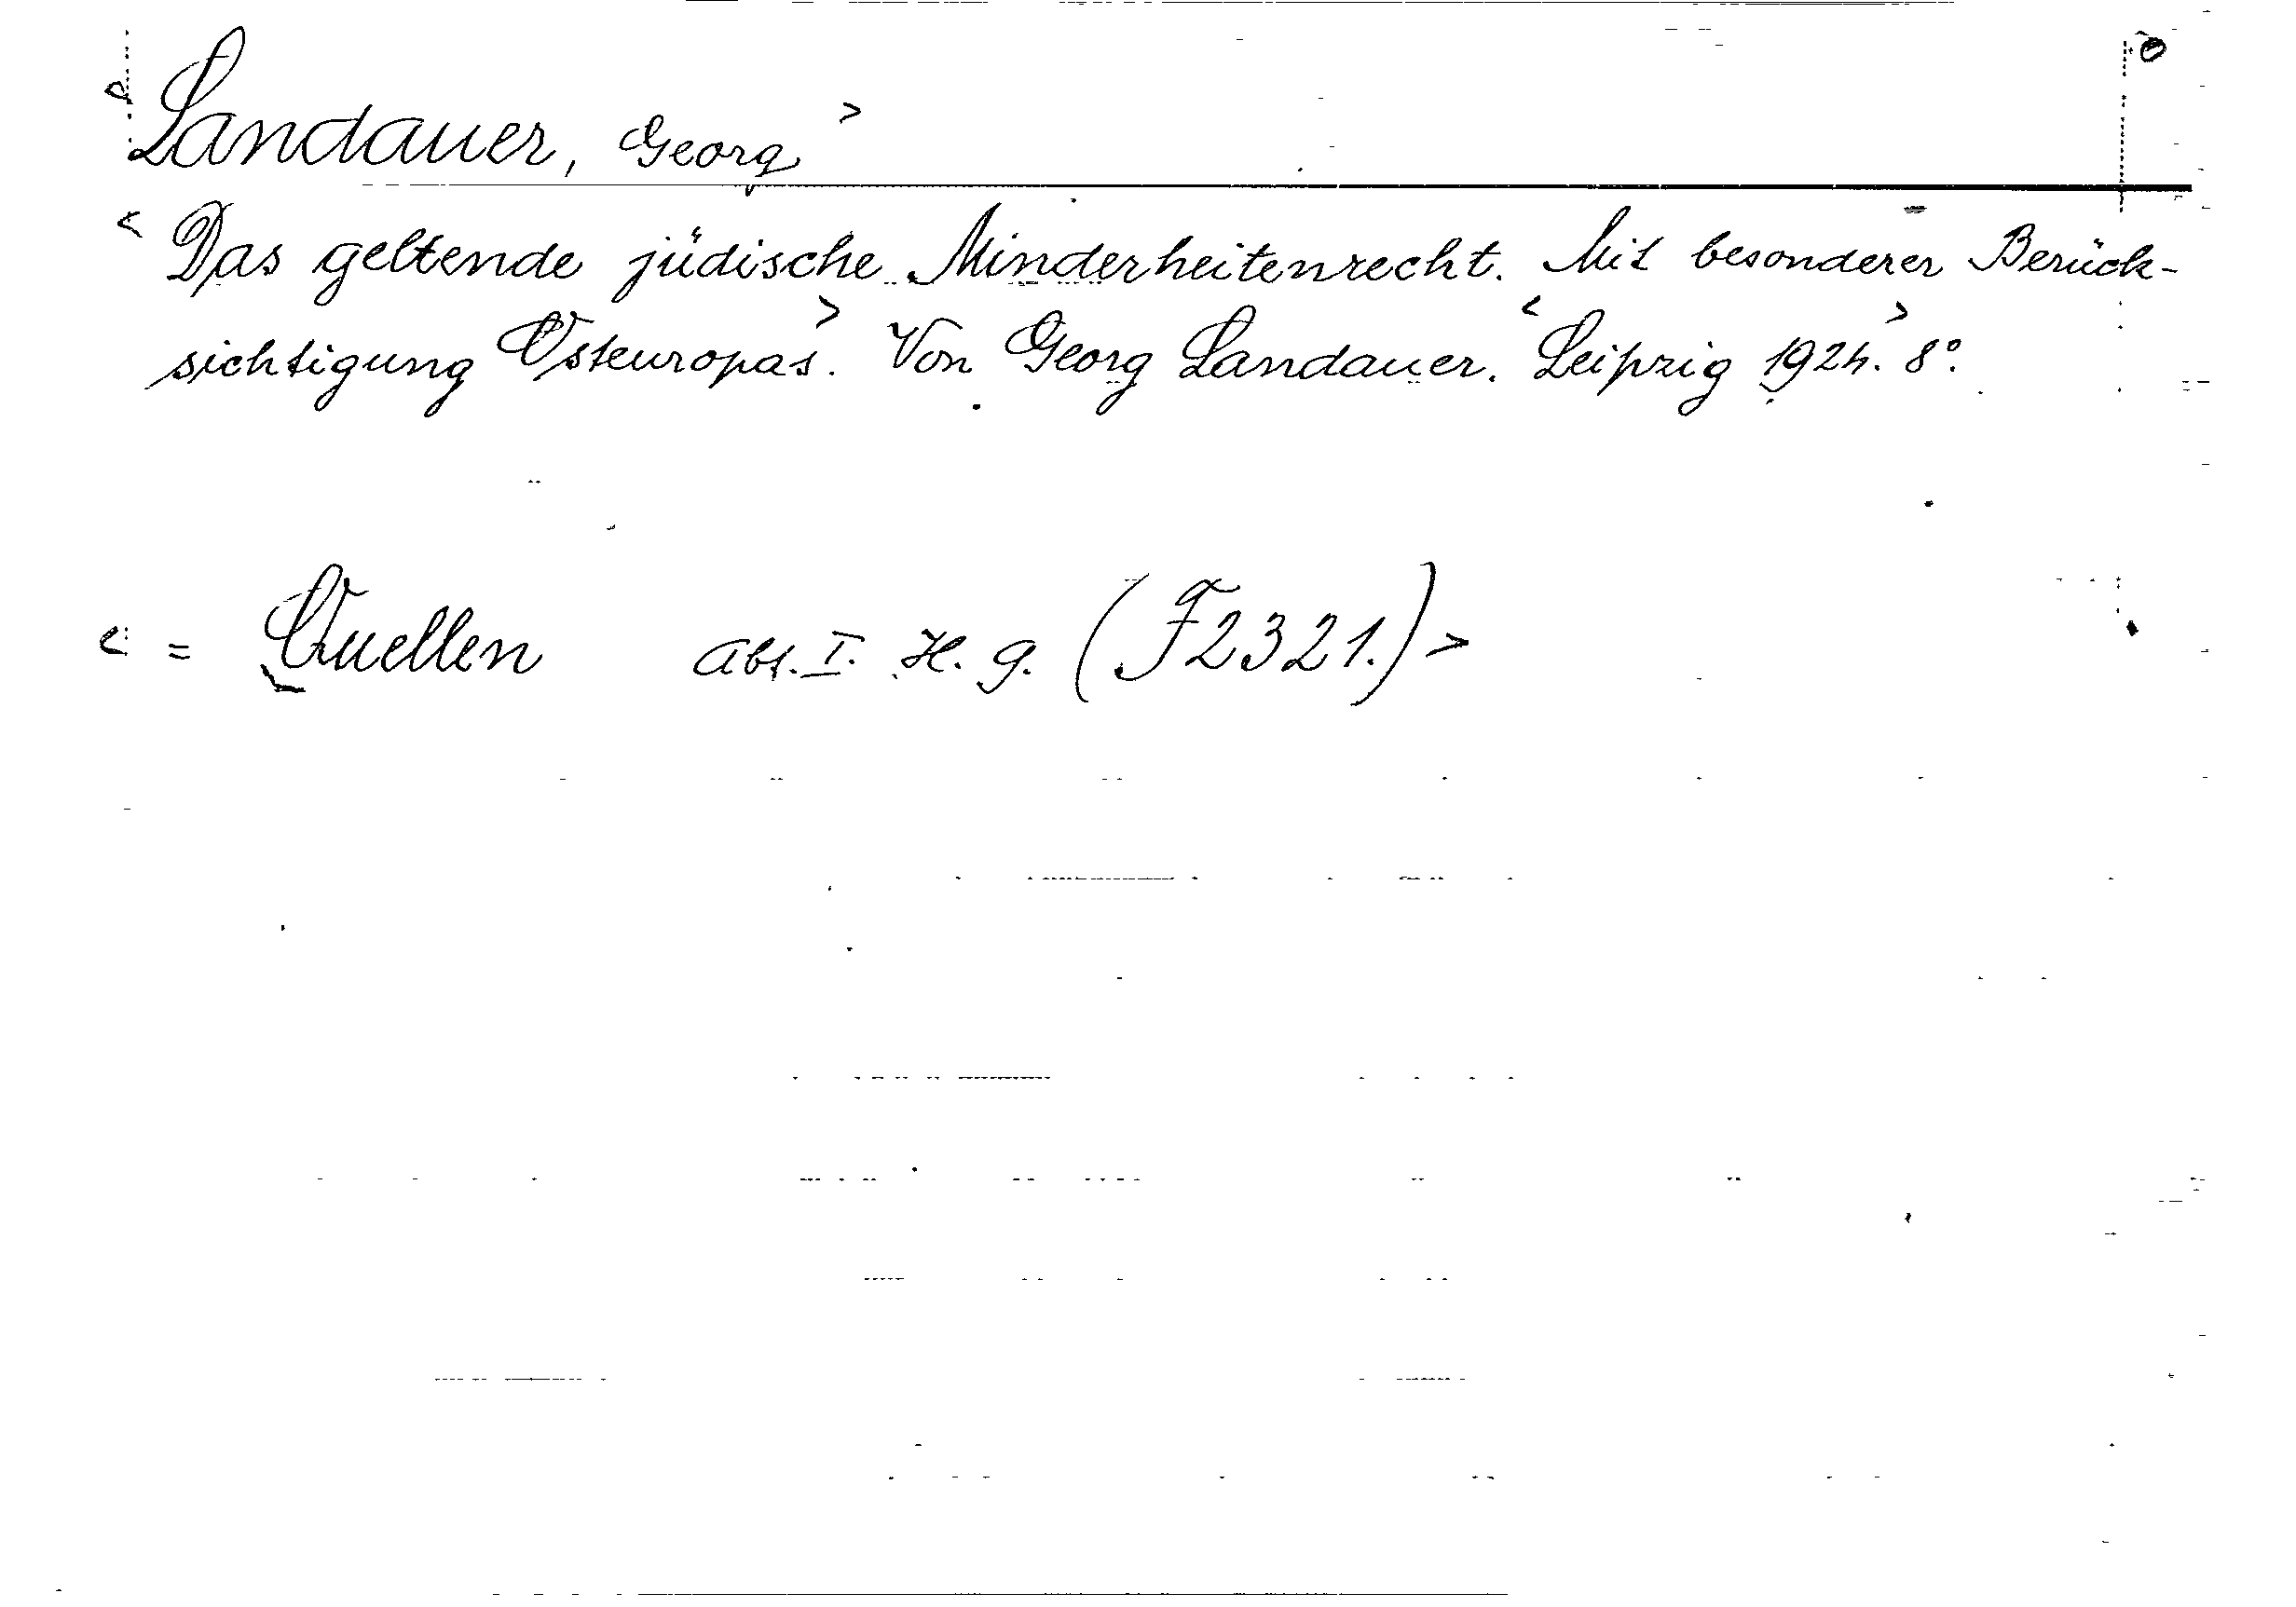 Landauer, Georg >
< Das geltende jüdische Minderheitenrecht. Mit besonderer Berück-
sichtigung Osteuropas.> Von Georg Landauer. < Leipzig 1924.> 8°.
< = Quellen Abt. I. H. 9. (F2321.) >